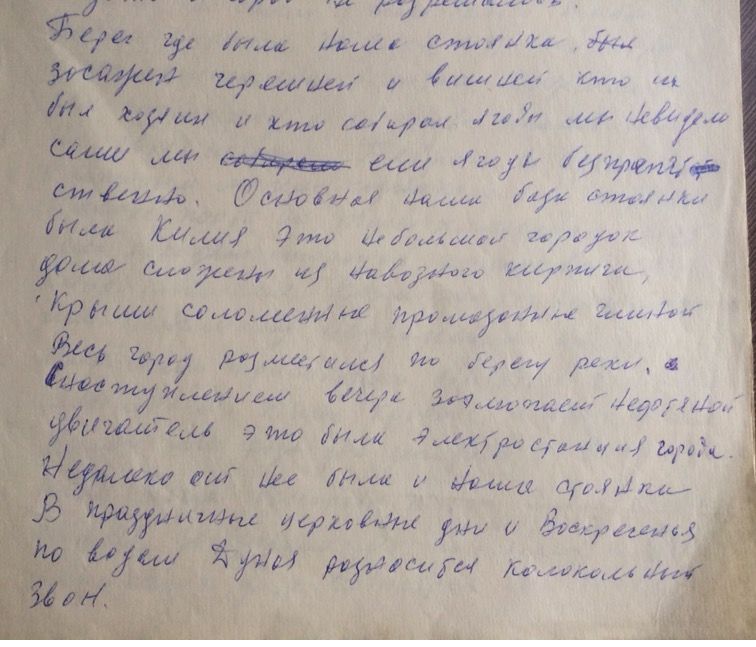 разрешались.
Берег где была наша стоянка, был
засажен черешней и вишней кто их
был хозяин и кто собирал ягоды мы невидели
сами мы собирали ели ягоды безпрепят
ственно. Основная наша база стоянки
была Килия это небольшой городок
дома сложены из навозного кирпича,
Крыши соломенные промазанные глиной
Весь город разместился по берегу реки.
Снаступлением вечера заалюпает нефтяной
двигатель это была электростанция города.
Недалеко от нее была и наша стоянка
В праздничные церковные дни и Воскресенья
по водам Дуная разносится колокольный
звон.